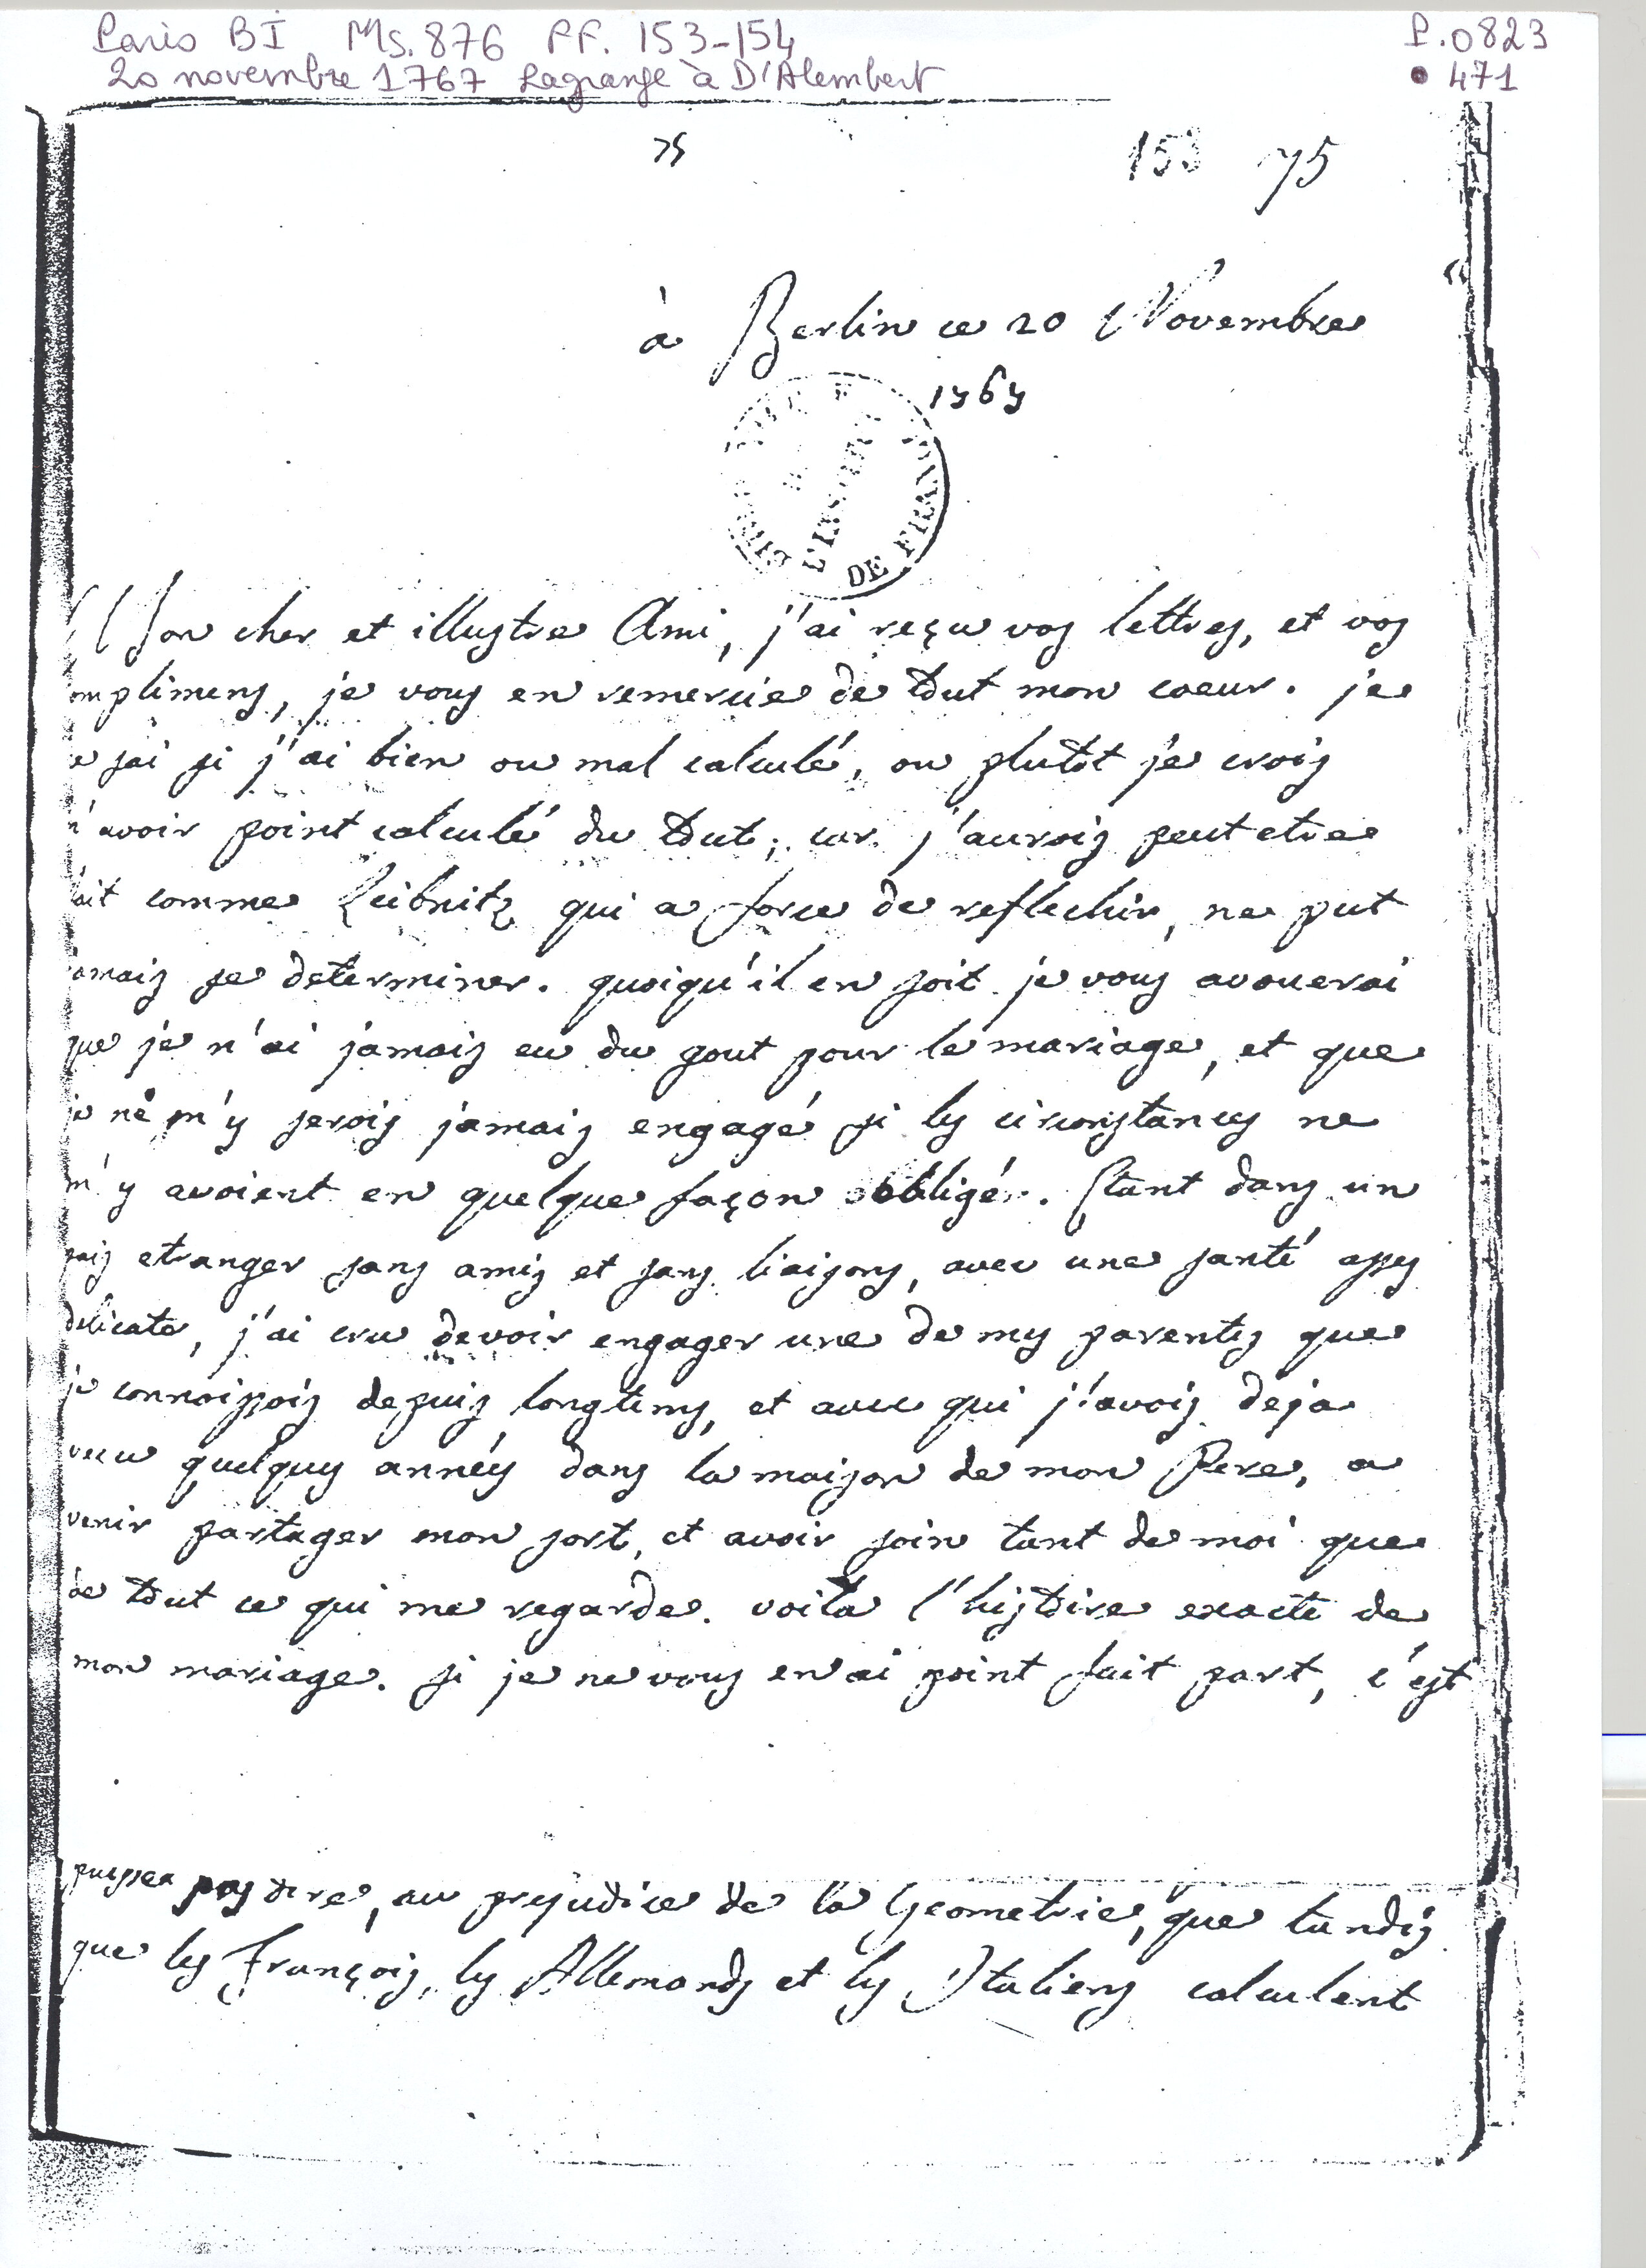 Paris BI Ms.876 FF. 153-154
P.0823
20 novembre 1767 Lagrange à D'Alembert
471
75
153 75
à Berlin ce 20 Novembre
1767
L'INSTITUT
DE FRANCE
Mon cher et illustre Ami, j'ai reçu vos lettres, et vos
ompliments, je vous en remercie de tout mon coeur. je
e sai si j'ai bien ou mal calculé, ou plutôt je crois
n'avoir point calculé du tout; car j'aurois peut etre
fait comme Leibnitz qui a force de reflechir, ne put
jamais se determiner. quoiqu'il en soit je vous avouerai
que je n'ai jamais eu du gout pour le mariage, et que
je ne m'y serois jamais engagé si les circonstances ne
m'y avoient en quelque façon obligé. Etant dans un
païs etranger sans amis et sans liaisons, avec une santé assez
delicate, j'ai cru devoir engager une de mes parentes que
je connoissois depuis longtems, et avec qui j'avois deja
vecu quelques années dans la maison de mon Pere, a
venir partager mon sort, et avoir soin tant de moi que
de tout ce qui me regarde. voila l'histoire exacte de
mon mariage. si je ne vous en ai point fait part, c'est
puisse pas dire, au prejudice de la Geometrie, que tandis
que les François, les Allemands et les Italiens calculent